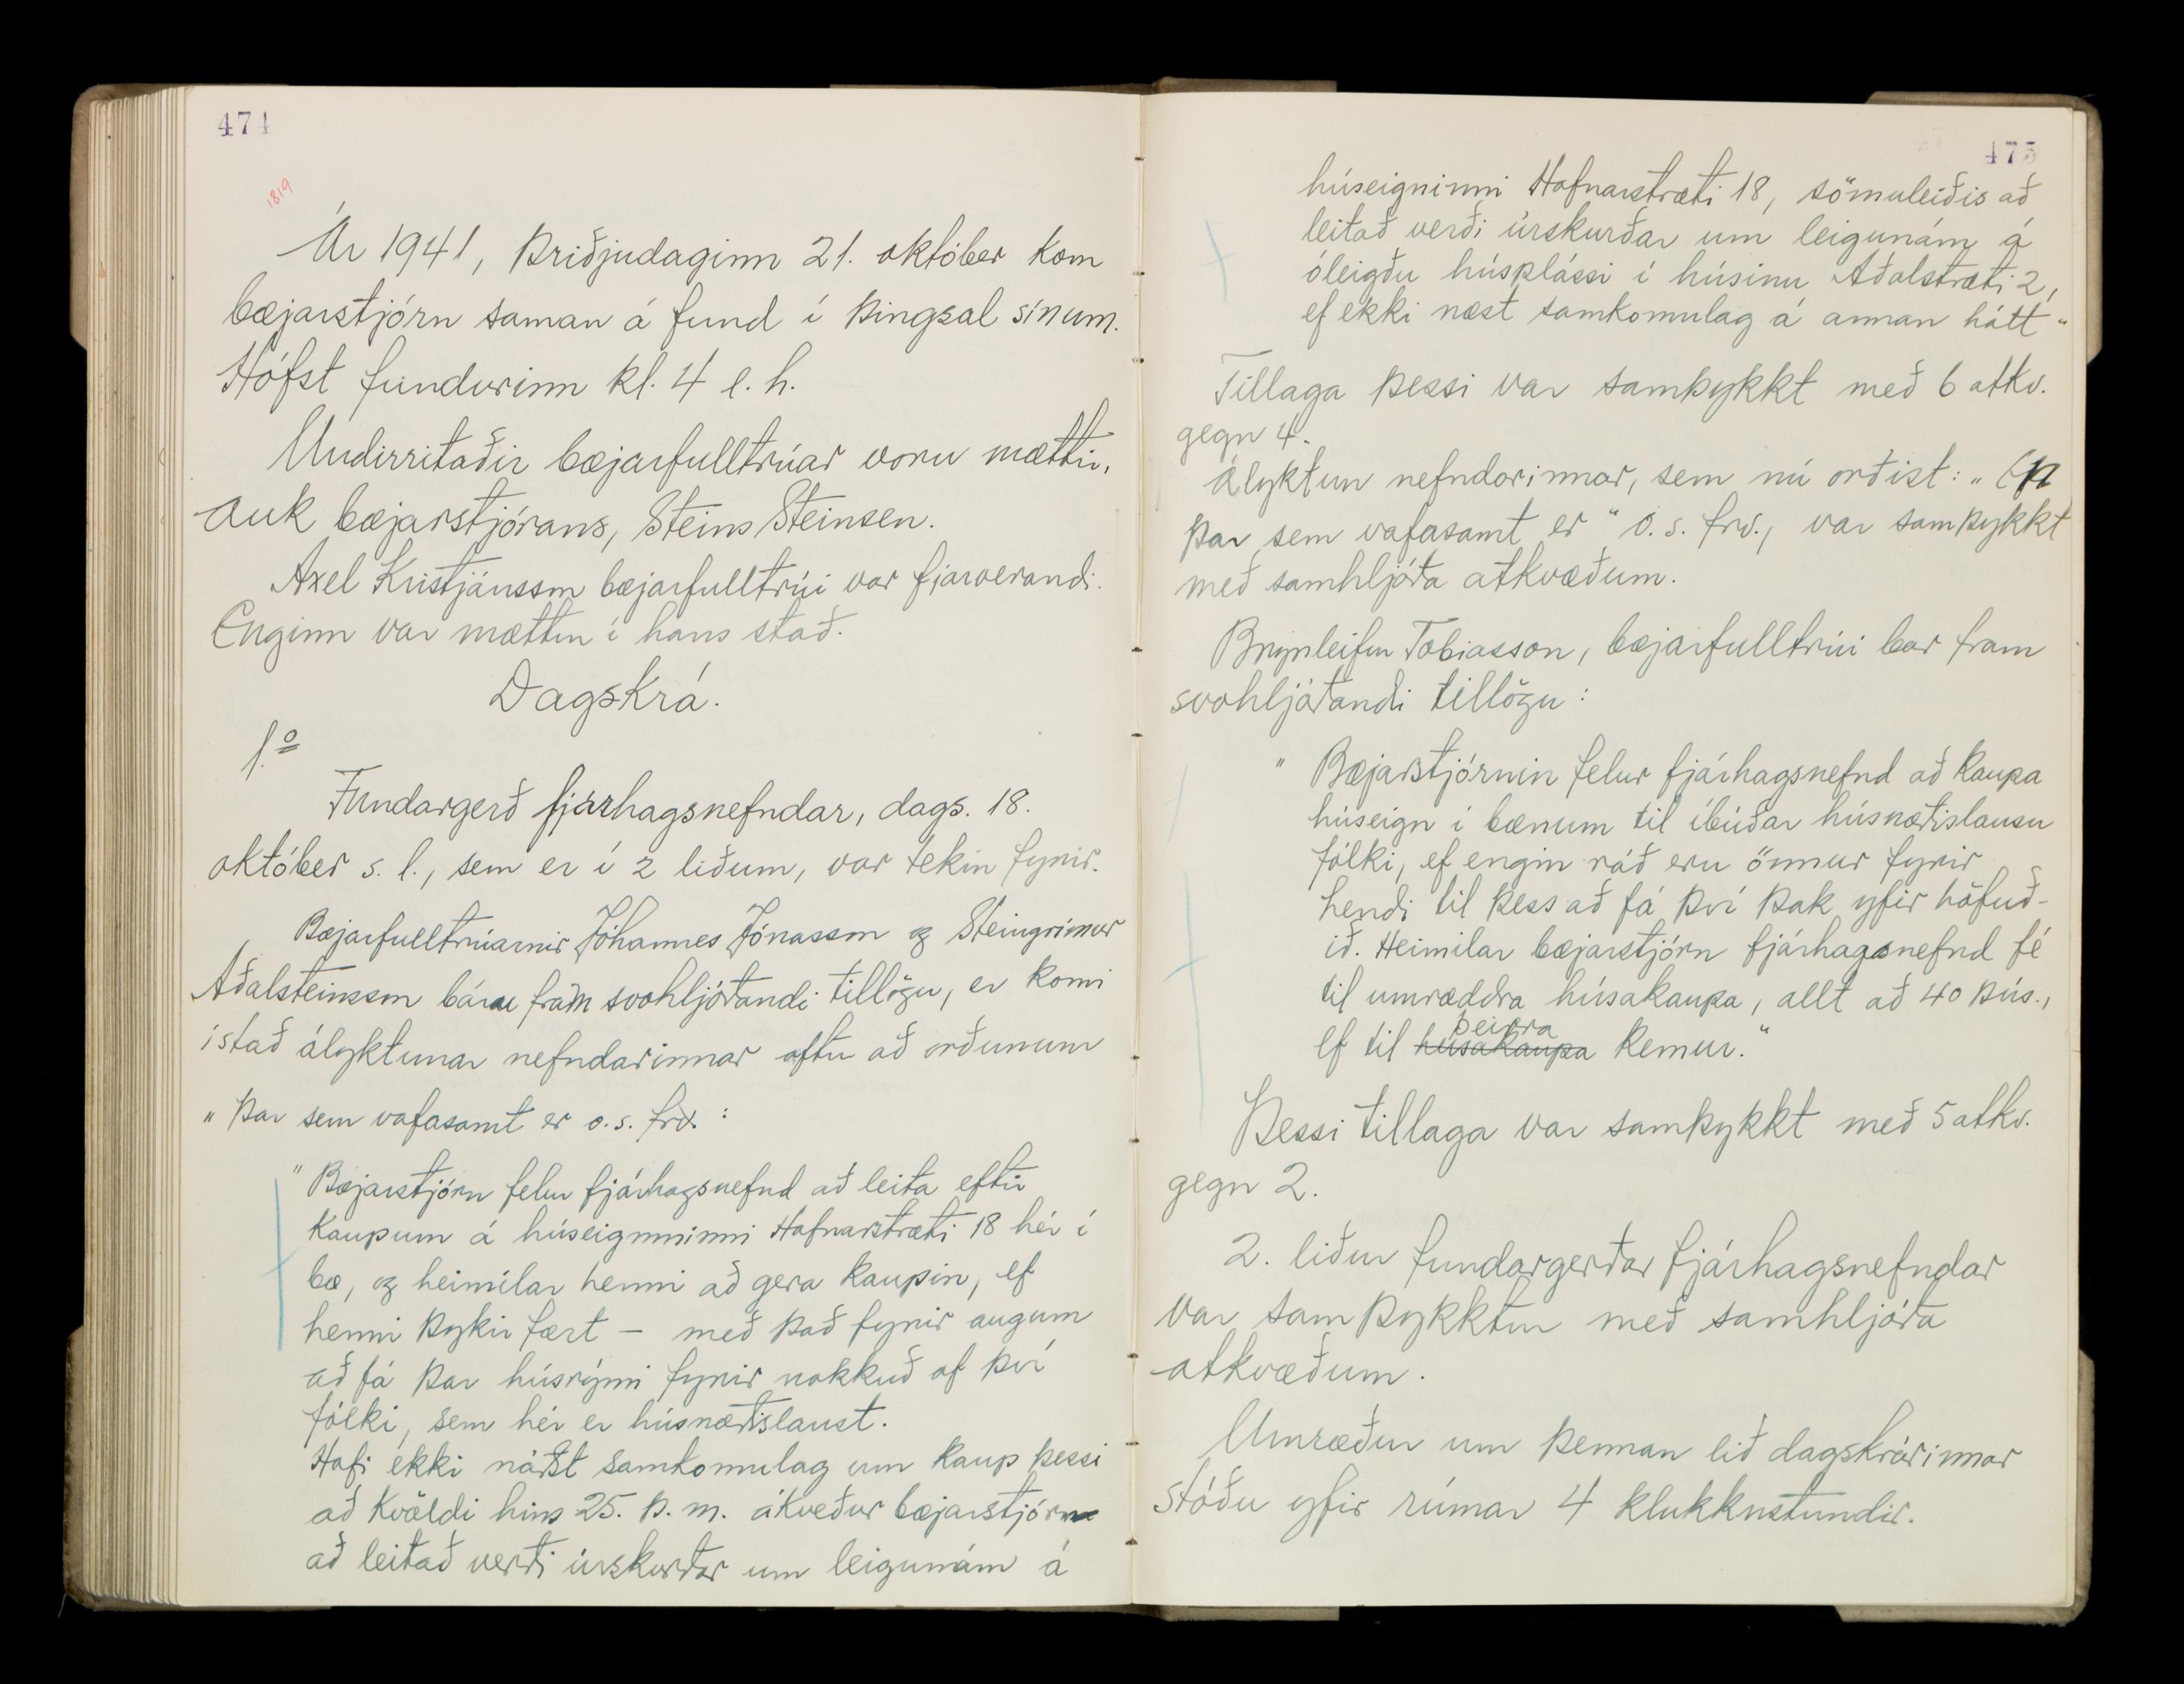 474
1819
Ár 1941, þriðjudaginn 21. október kom
bæjarstjórn saman á fund í þingsal sínum.
Hófst fundurinn kl. 4 e. h.
Undirritaðir bæjarfulltrúar voru mættir,
auk bæjarstjórans, Steins Steinsen.
Axel Kristjánsson bæjarfulltrúi var fjarverandi.
Enginn var mættur í hans stað.
Dagskrá.
1.o
Fundargerð fjárhagsnefndar, dags. 18.
október s. l., sem er í 2 liðum, var tekin fyrir.
Bæjarfulltrúarnir Jóhannes Jónasson og Steingrímur
Aðalsteinsson báru fram svohljóðandi tillögu, er komi
í stað ályktunar nefndarinnar eftir að orðunum
„ þar sem vafasamt er o. s. frv. :
" Bæjarstjórn felur fjárhagsnefnd að leita eftir
kaupum á húseignninni Hafnarstræti 18 hér í
bæ, og heimilar henni að gera kaupin, ef
henni þykir fært - með það fyrir augum
að fá þar húsrými fyrir nokkuð af því
fólki, sem hér er húsnæðislaust.
Hafi ekki náðst samkomulag um kaup þessi
að kvöldi hins 25. þ. m. ákveður bæjarstjórn
að leitað verði úrskurðar um leigunám á
475
húseigninni Hafnarstræti 18, sömuleiðis að
leitað verði úrskurðar um leigunám á
óleigðu húsplássi í húsinu Aðalstræti 2,
ef ekki næst samkomulag á annan hátt "
Tillaga þessi var samþykkt með 6 atkv.
gegn 4.
Ályktun nefndarinnar, sem nú orðist : „
þar sem vafasamt er " o. s. frv., var samþykkt
með samhljóða atkvæðum.
Brynleifur Tobiasson, bæjarfulltrúi bar fram
svohljóðandi tillögu :
" Bæjarstjórnin felur fjárhagsnefnd að kaupa
húseign í bænum til íbúðar húsnæðislausu
fólki, ef engin ráð eru önnur fyrir
hendi til þess að fá því þak yfir höfuð-
ið. Heimilar bæjarstjórn fjárhagsnefnd fé
til umræddra húsakaupa, allt að 40 þús.,
þeirra
ef til húsakaupa kemur."
Þessi tillaga var samþykkt með 5 atkv.
gegn 2.
2. liður fundargerðar fjárhagsnefndar
var samþykktur með samhljóða
atkvæðum.
Umræður um þennan lið dagskrárinnar
stóðu yfir rúmar 4 klukkustundir.